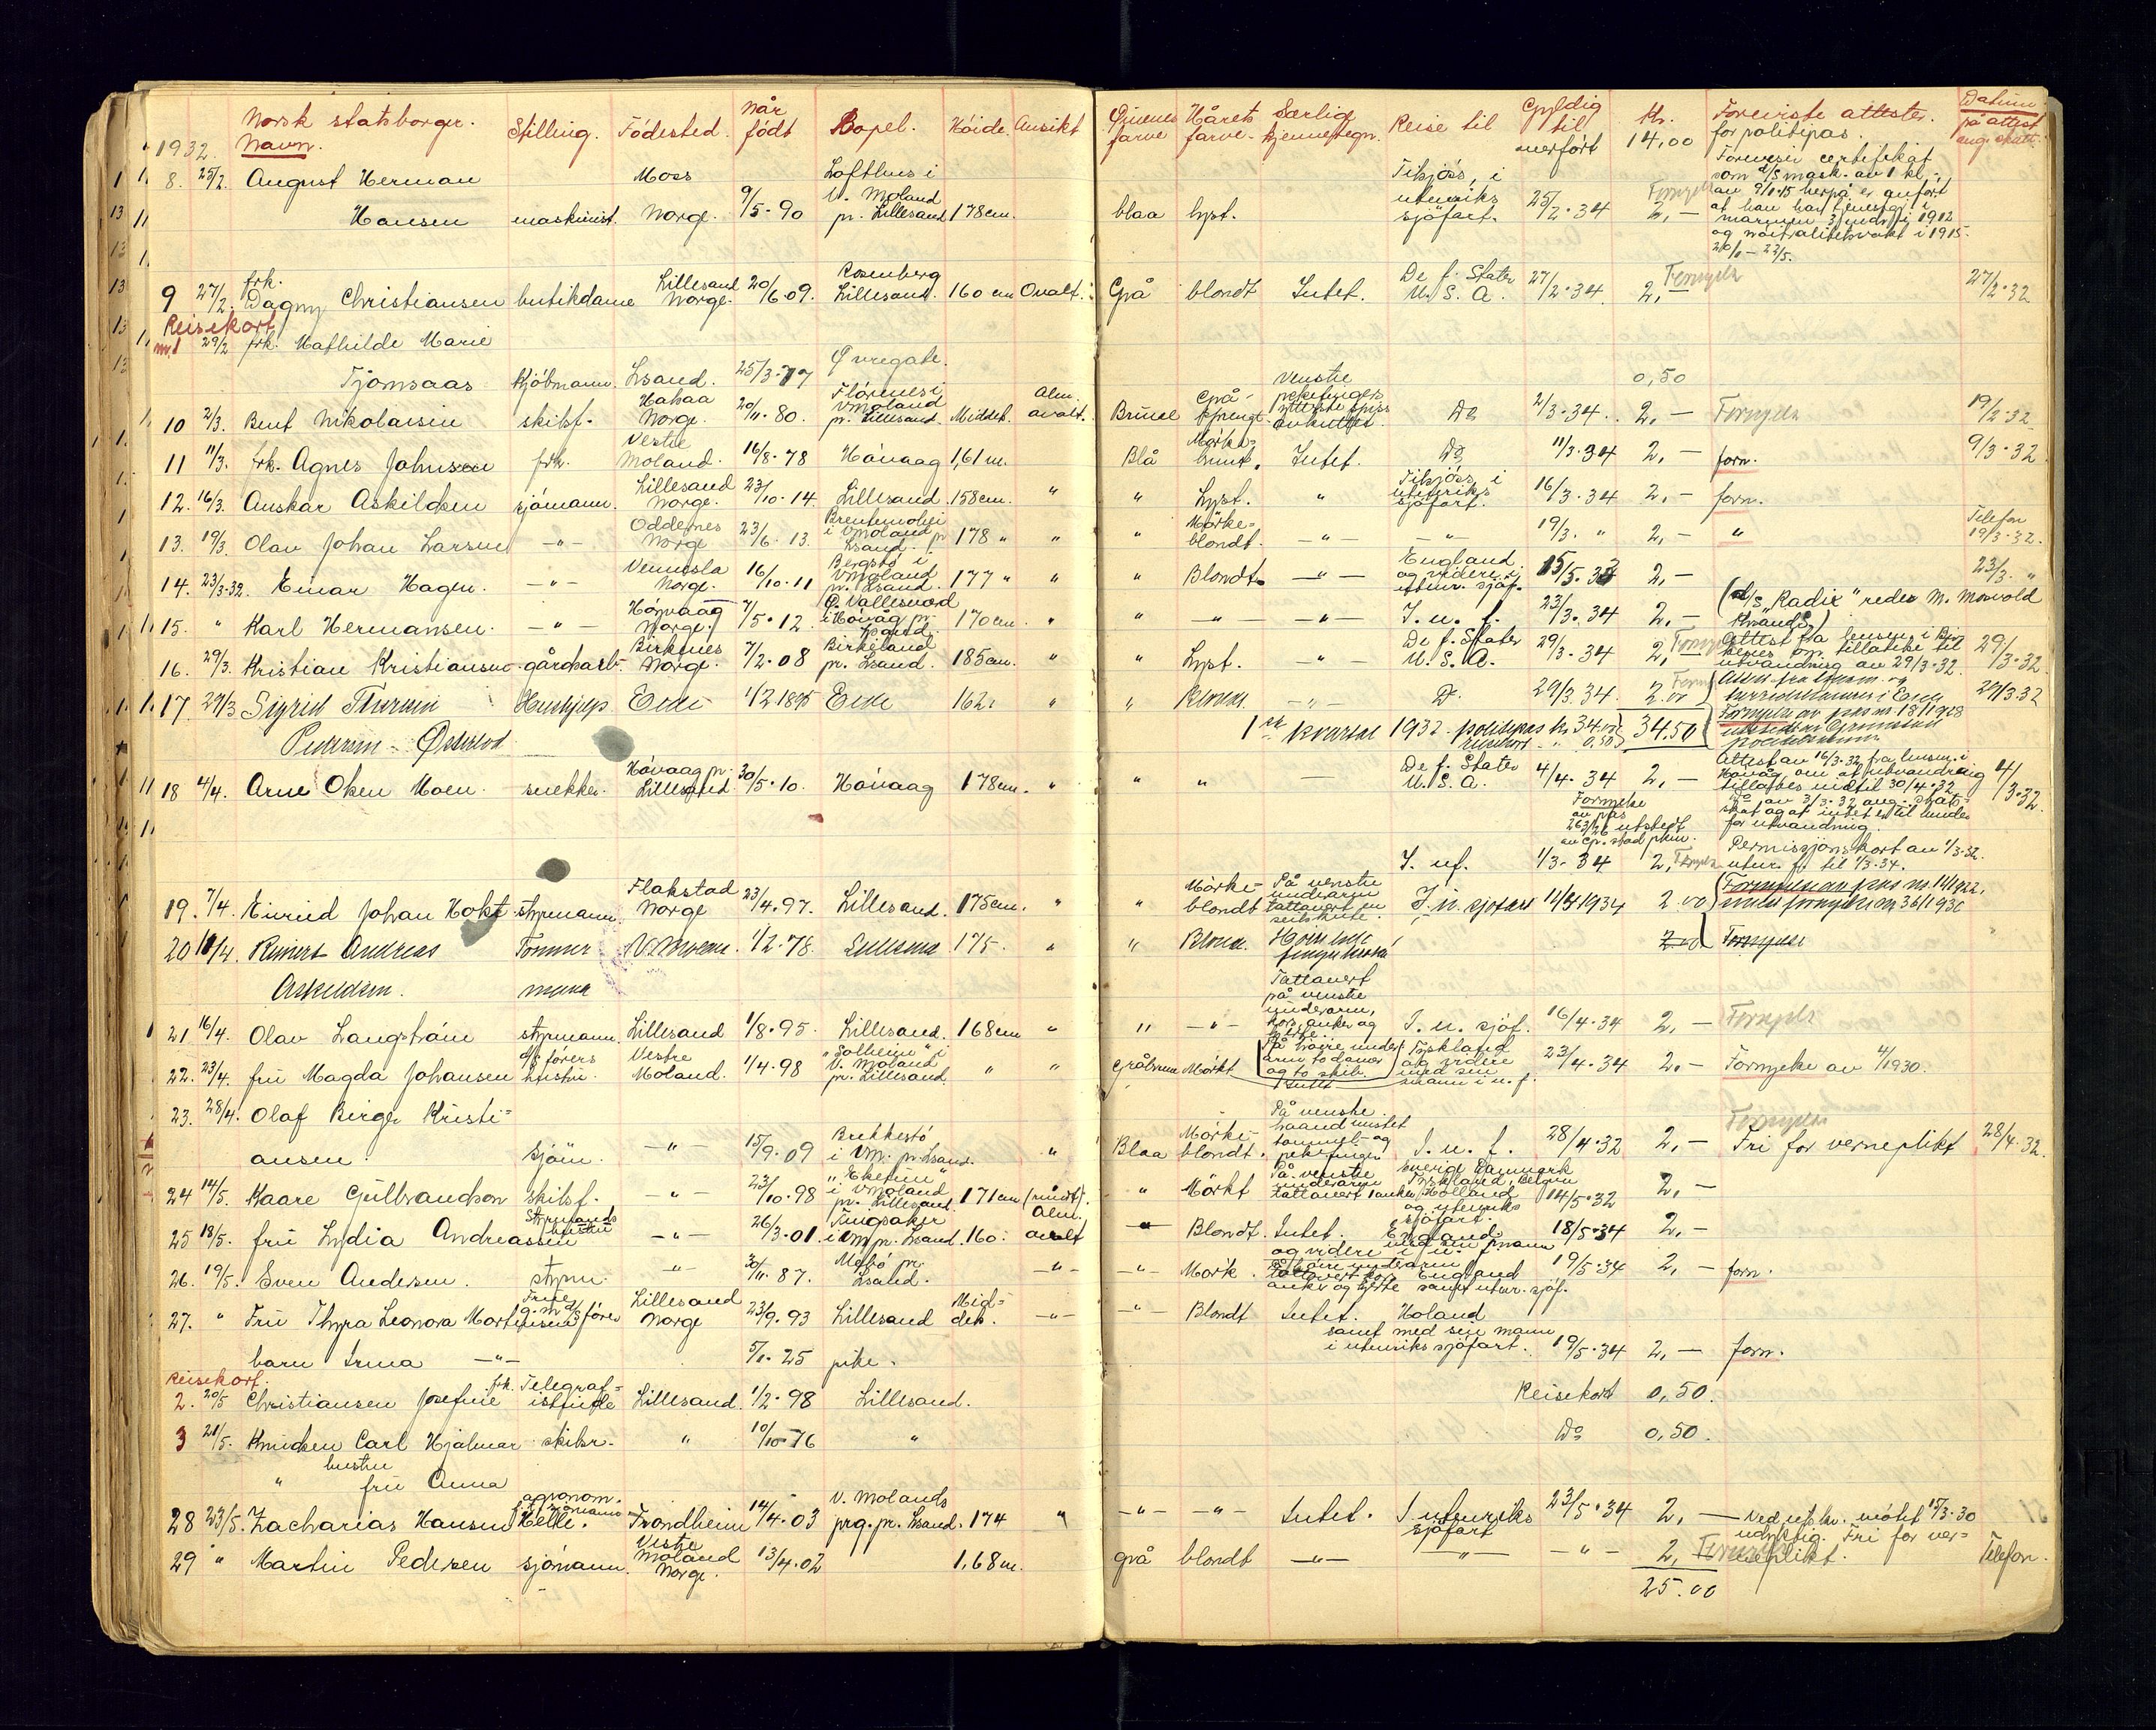 1932.
Norsk statsborger. Navn. Stilling. Födested. Når födt Bopel. Höide. Ansikt Öienes farve Hårets farve. Særlig kjennetegn. Reise til Gyldig til Kr. Foreviste attester for politipas. Datum på attest ang. skatt.
overfört 14,00
8. 25/2. August Herman Hansen maskinist. Moss Norge. 9/5-90 Lofthus i V. Moland pr. Lillesand 178 cm. blaa lyst. Tilsjöss, i utenriks sjöfart. 25/2-34 2,- Fornyels
Foreviser certifikat som mask. av 1 kl. av 9/1-15 herpå er anfört at han har tjenestgj. i marinen 3 mdr. i 1912 og nöitralitetsvakt i 1915. 20/1-22/5.
9 27/2. frk. Dagny Christiansen butikdame Lillesand Norge. 20/6 09. Rosenberg Lillesand. 160 cm Ovalt. Grå blondt Intet. De f. Stater U.S.A. 27/2-34 2,- Fornyels 27/2-32
Reisekort
nr. 1 29/2 frk. Mathilde Marie
Tjomsaas Kjöbmann. Lsand. 25/3-77 Övregate. 0,50
10 2/3. Bent Nikolaisen skibsf. Norge. 20/11-80. V Moland pr. Lillesand Middels. Alm. ovalt. Brune Grå-sprengt. Venstre pekefinger ytterste spiss avkuttet. Do 2/3-34. 2,- Fornyels 19/2-32
11 11/3. frk. Agnes Johnsen frk. Vestre Moland. 16/8-78 Hövaag 1,61 m. Blå Mörkebrunt. Intet. Do 11/3-34 2,- forn. 9/3-32
12. 16/3. Anskar Askildsen sjömann. Lillesand Norge. 23/10-14. Lillesand. 158 cm. " " Lyst. " Tilsjöss, i utenriks sjöfart. 16/3-34 2,- forn.
13. 19/3. Olav Johan Larsen -"- Oddernes Norge 23/6-13. i V Moland pr Lsand. 178 " " " Mörkeblondt. -"- -"- 19/3. " 2,- " Telefon 19/3-32.
14. 23/3-32. Einar Hagen. -"- Vennesla Norge. 16/10-11 Bergstö i V Moland pr. Lsand. 177 " " " Blondt. -"- England og videre i utenr. sjöf. 15/5-33 2,- 23/3. "
15. " Karl Hermansen. -"- Hövaag Norge. 7/5-12 Ö. Vallesverd i Hövåg pr. Lsand. 170 cm. " " -"- -"- I. u. f. 23/3-34 2,- (d/s "Radix" reder M. Mosvold Kr.sand S)
16. 29/3. Kristian Kristiansen. gårdsarb. Birkenes Norge. 7/2-08 Birkeland pr. Lsand. 185 cm. " " Lyst. -"- De f. Stater U.S.A. 29/3-34 2,- Fornyels Attest fra lensm. i Birkenes om tillatelse til utvandring av 29/3-32. 29/3-32
17 29/3 Sigrid Pedersen Österlod Hushjelp Eide 1/2 1895 Eide 162. " " Blond. -"- Do 29/3.34. 2.00 Attest fra lensm. og 29/3 32
Fornyelse av pas nr. 18/1928 utstedt av Grimstad politikammer
1ste kvartal 1932 - politipas kr. 34.00 reisekort " 0,50 34.50
18 4/4. Arne Olsen Moen. snekker. Hövaag pr. Lillesand 30/5-10. Hövaag 178 cm. " " " — De f. Stater U.S.A. 4/4-34 2,- Attest av 16/3-32 fra lensm. i Hövåg om at utvandring tillates indtil 30/4-32. Do av 3/3-32 ang. skat at intet er til hinder for utvandring. 4/3-32.
Fornyelse av pas 263/26 utstedt
19. 7/4. Eivind Johan Holst styrmann. Flakstad Norge 23/4-97. Lillesand. 175 cm. " " Mörkeblondt På venstre underarm tattovert en seilskute. I. uf. 1/3-34 2,- Fornyels Permisjonskort av 1/3-32. utenr. f. til 1/3-34.
20 11/4. Reinert Andreas Askildsen. Tömmermann V. Moland. 1/2-78. Lillesand 175. " " Blond. I. u. sjöfart 11/4 1934 2.00 Fornyelse av pas nr. 14/1922, 36/1930
2.00 Fornyelse
21 16/4. Olav Langstrøm styrmann. Lillesand 1/8-95. Lillesand. 168 cm " " -"- Tattovert på venstre underarm, kors, anker og hjerte. I. u. sjöf. 16/4-34 2,- Fornyels
22. 23/4. fru Magda Johansen d/s förers hustru. Vestre Moland. 1/4-98 "Solheim" i V. Moland pr. Lillesand " " gråbrune Mörkt På höire underarm to damer og to skib. Intet Tyskland og videre med sin mann i u. f. 23/4-34 2,- Fornyelse av 4/1930.
23. 28/4. Olaf Birger Kristi-
ansen. sjöm. -"- 15/9-09 Brekkestö i VM. pr. Lsand. " Blaa Mörkeblondt. På venstre haand mistet tommel- og pekefinger I. u. f. 28/4-32 2,- Fornyels Fri for verneplikt 28/4-32.
24 14/5. Kaare Gulbrandson skibsf. -"- 23/10-98 i V Moland pr. Lillesand. 171 cm (rundt). " Mörkt På venstre underarm tattovert 1 anker Sverige Danmark Tyskland, Belgien Holland og utenriks sjöfart. 14/5-32 2,-
25 18/5. fru Lydia Andreassen Styrmands hustru -"- 26/3-01. Tingsaker i VM pr. Lsand. 160. Alm. ovalt " Blondt. Intet. England og videre i u. med sin mann 18/5-34 2,-
26. 19/5. Sven Andersen. styrm. -"- 30/11-87. pr. Lsand. -"- -"- Mörk. På höire underarm tattovert kors anker og hjerte England samt utenr. sjöf. 19/5-34 2,- forn.
27. " Fru Thyra Leonora Mortensen Lillesand Norge 23/9-93 Lillesand Middels. -"- -"- Blondt Intet. Holand samt med sin mann i utenriks sjöfart. 19/5-34 2,- forn.
barn Irma -"- 5/1-25 pike.
Reisekort.
2. 20/5 Christiansen Josefine frk. Telegrafistinde Lillesand. 1/2-98 Lillesand. Reisekort 0,50.
3 21/5. Knudsen Carl Hjalmar skibsr. " 10/10-76 " Do 0,50.
" hustru fru Anna
28 23/5. Zacharias Hansen Helle. agronom. Trondheim 14/4-03 V. Molands prg. pr. Lsand. 174 " -"- -"- Intet. I utenriks sjöfart 23/5-34 2,- Ved utskr. mötet 15/3-30 udyktig. Fri for verneplikt.
29 " Martin Pedersen sjömann. Vestre Moland Norge. 13/4-02 1,68 m. grå blondt -"- -"- -"- 2,- Fornyels Telefon.
25.00